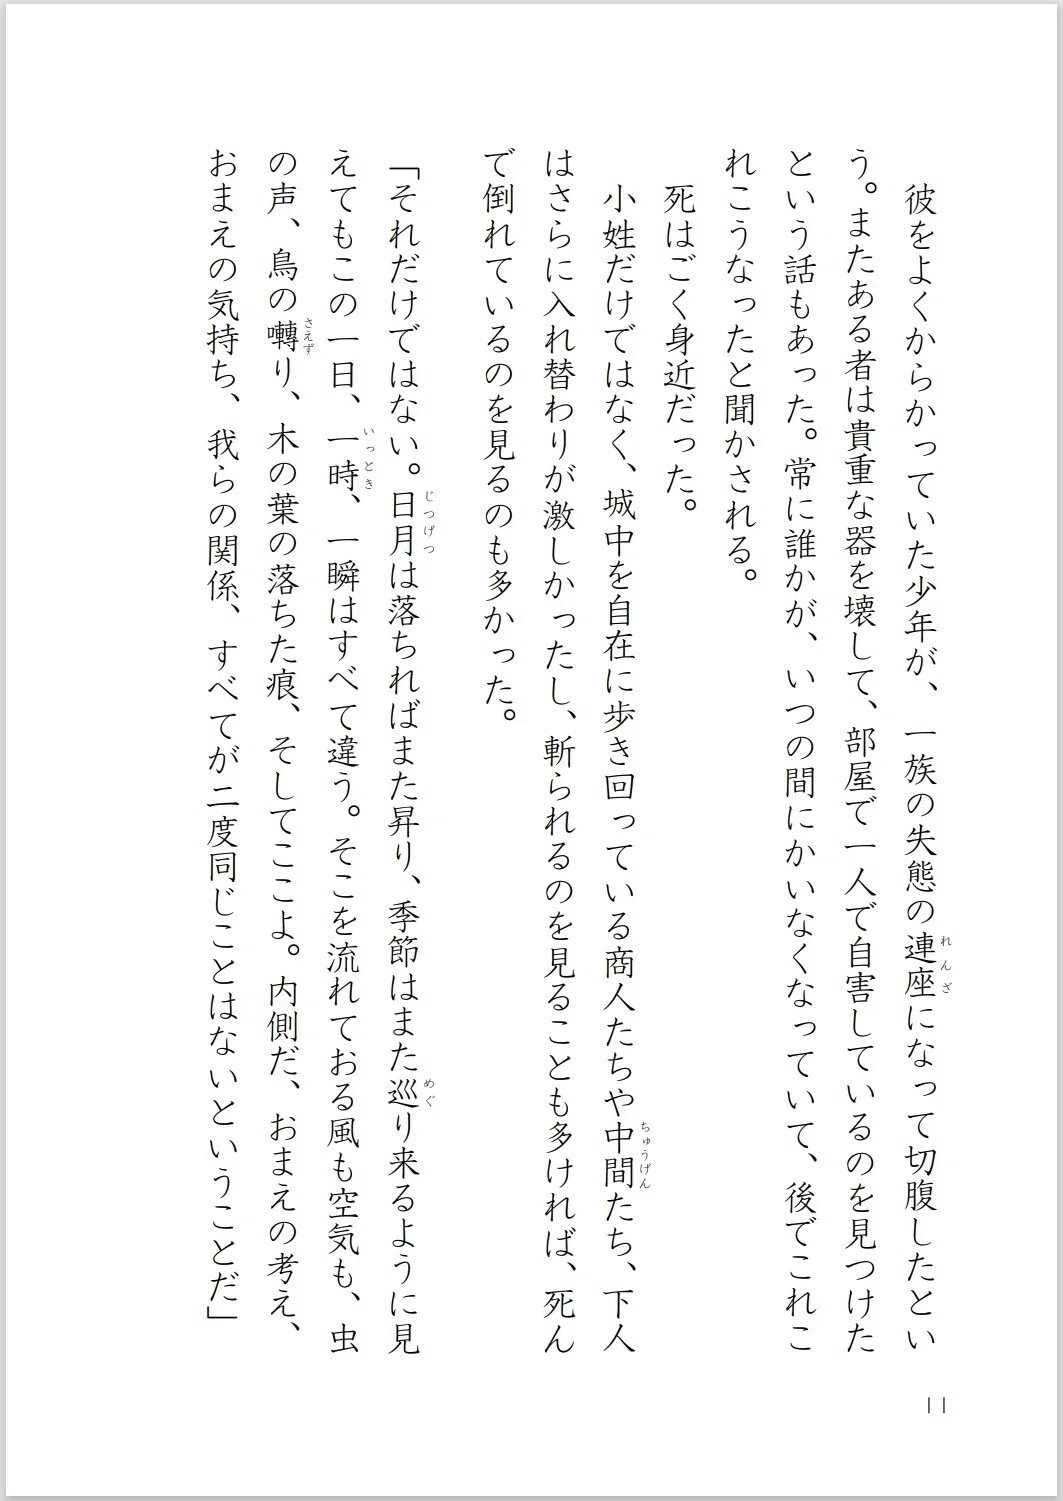 彼をよくからかっていた少年が、一族の失態の連座になって切腹したとい
れんざ
う。またある者は貴重な器を壊して、部屋で一人で自害しているのを見つけた
という話もあった。常に誰かが、いつの間にかいなくなっていて、後でこれこ
れこうなったと聞かされる。
死はごく身近だった。
小姓だけではなく、城中を自在に歩き回っている商人たちや中間たち、下人
ちゅうげん
はさらに入れ替わりが激しかったし、斬られるのを見ることも多ければ、死ん
で倒れているのを見るのも多かった。
「それだけではない。日月は落ちればまた昇り、季節はまた巡り来るように見
じつげつ
めぐ
えてもこの一日、一時、一瞬はすべて違う。そこを流れておる風も空気も、虫
いっとき
の声、鳥の囀り、木の葉の落ちた痕、そしてここよ。内側だ、おまえの考え、
さえず
おまえの気持ち、我らの関係、すべてが二度同じことはないということだ」
11